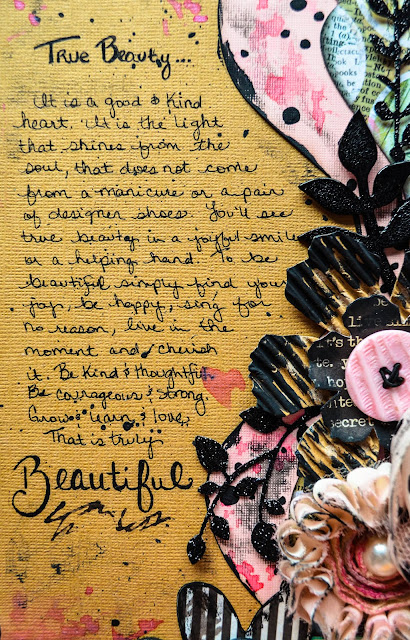 True Beauty...
It is a good & kind
heart. It is the light
that shines from the
soul, that does not come
from a manicure or a pair
of designer shoes. You'll see
true beauty in a joyful smile
or a helping hand. To be
beautiful simply find your
joy, be happy, sing for
no reason, live in the
moment and cherish
it. Be kind & thoughtful.
Be courageous & strong.
Grow & learn & love.
That is truly
Beautiful